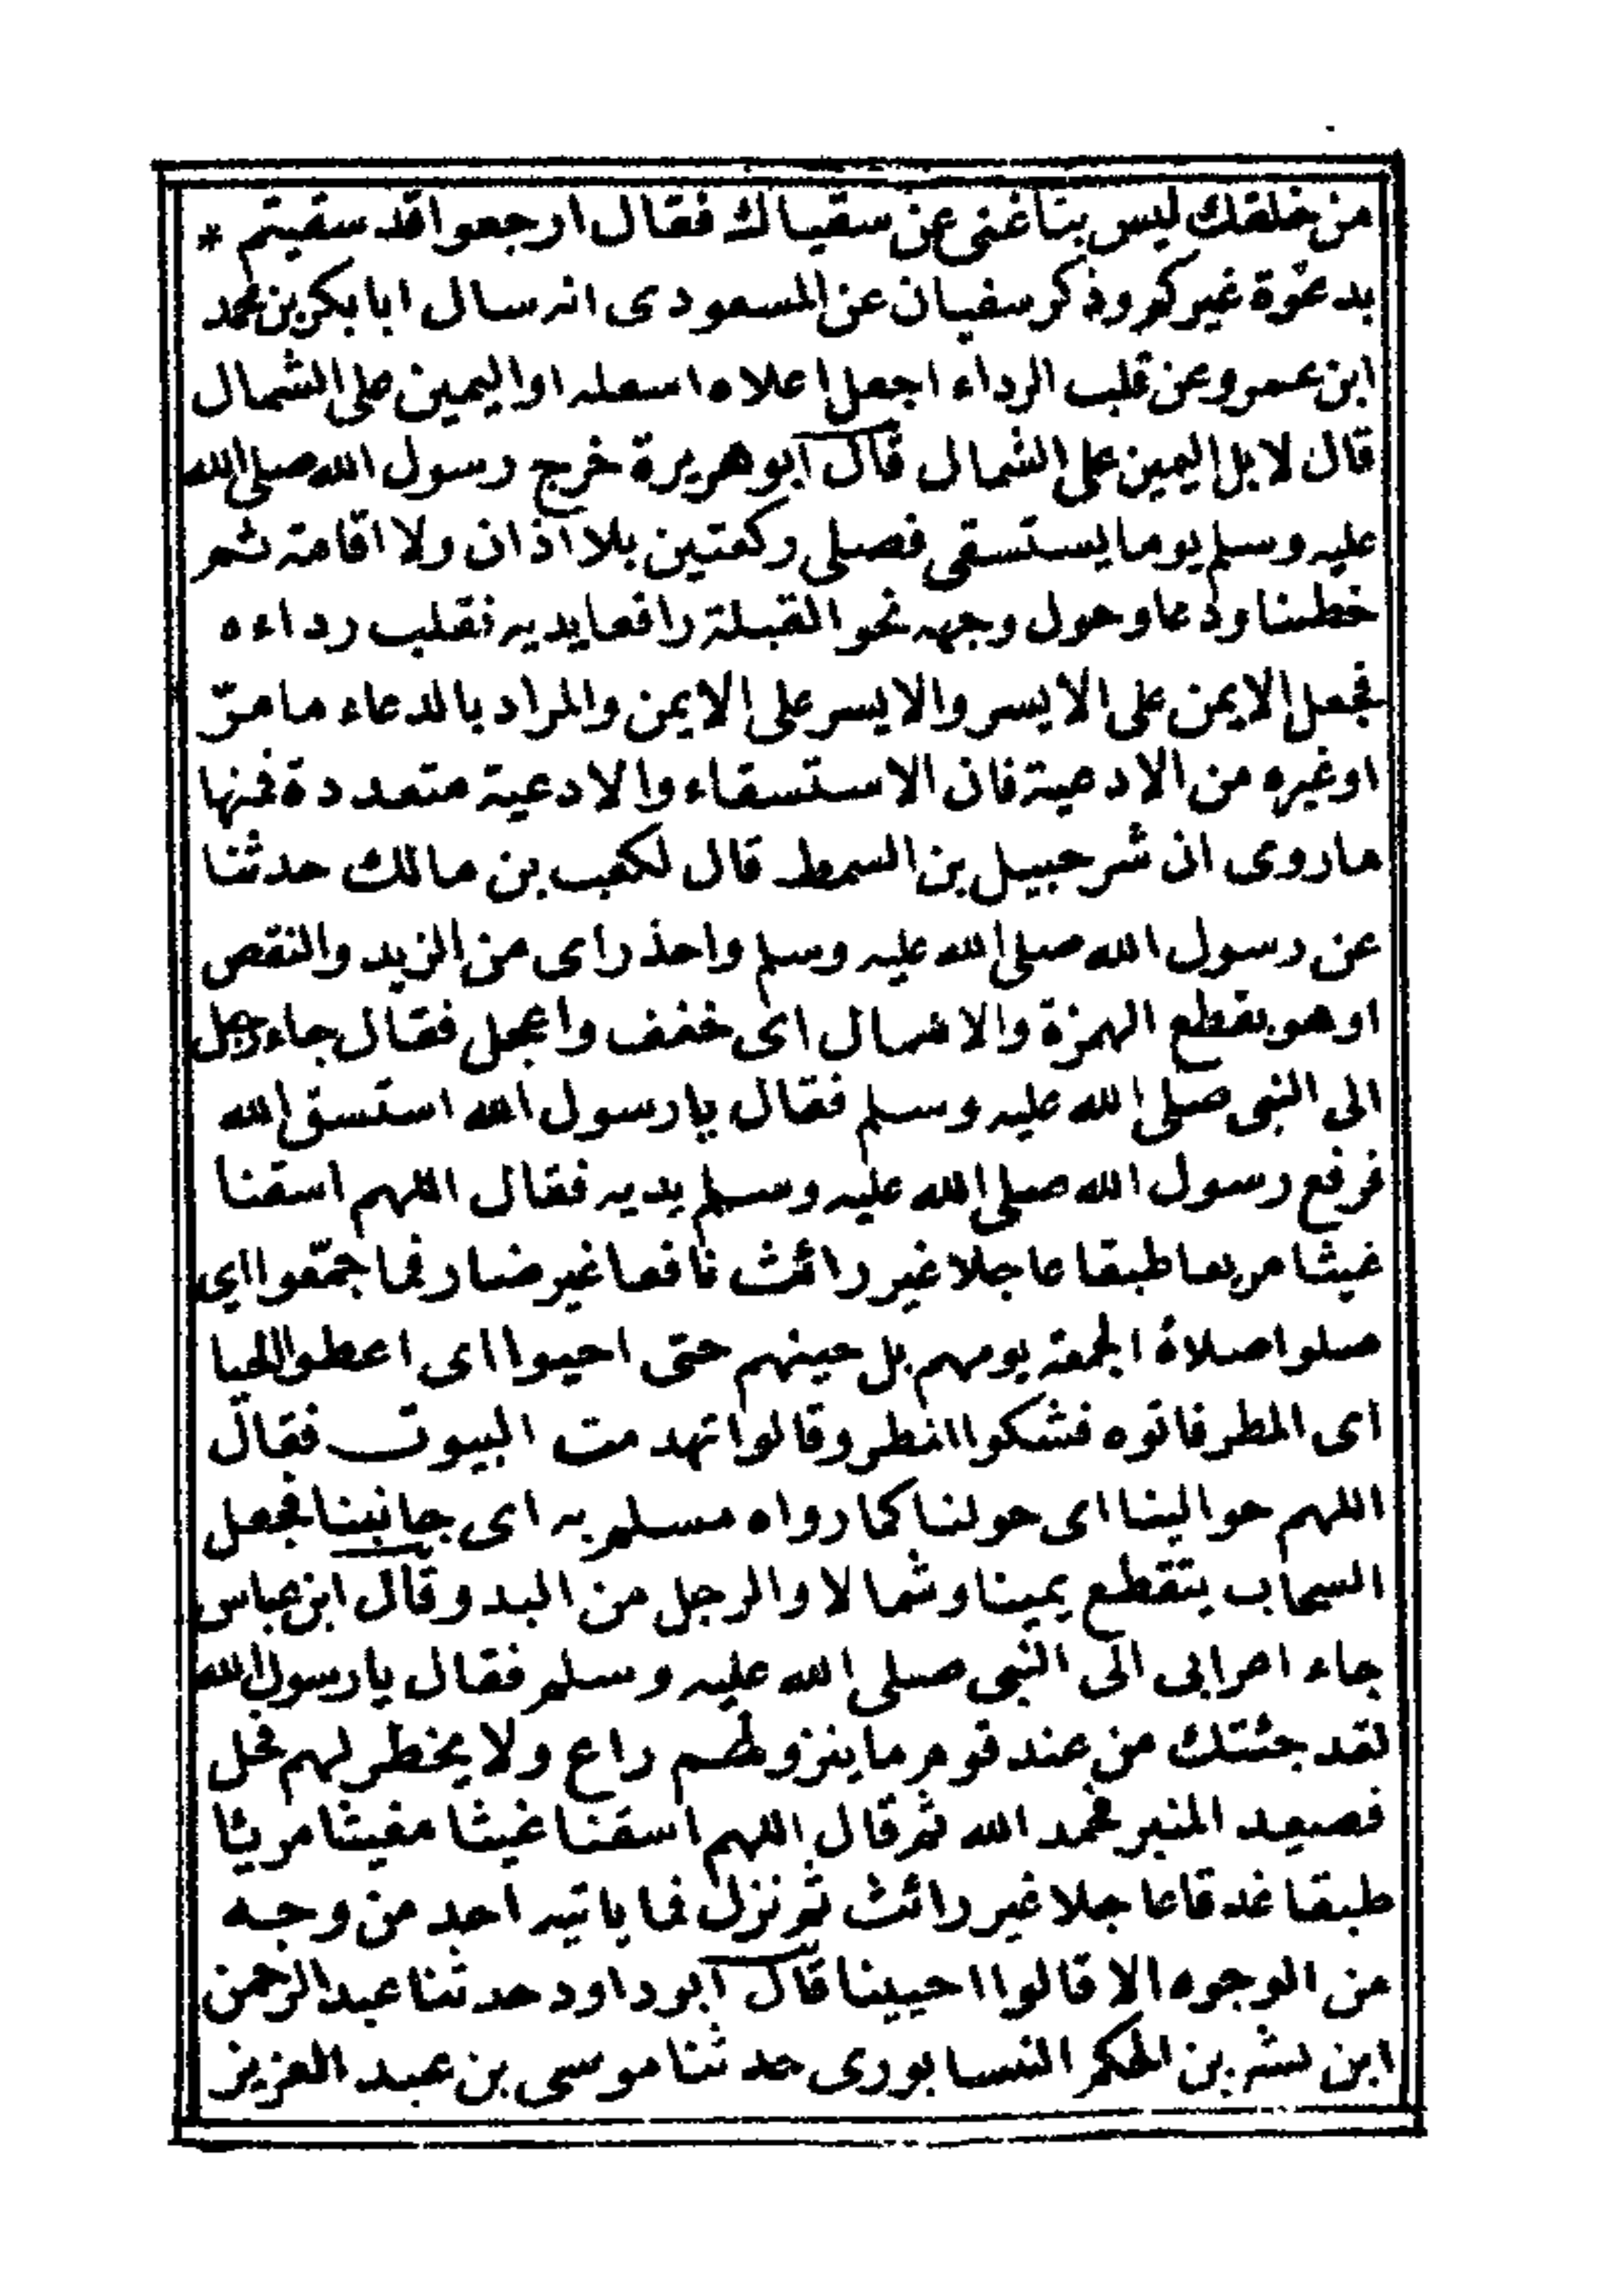 من خلقك ليس بنا غنى عن سقياك فقال ارجعوا قد سقيتم *
بدعوة غيركم وذكر سفيان عن المسعودى انه سال ابا بكر بن محمد
ابن عمرو عن قلب الرداء اجعل اعلاه اسفله او اليمين على الشمال
قال لا بل اليمين على الشمال قال ابو هريرة خرج رسول الله صلى الله
عليه وسلم يوما يستسقى فصلى ركعتين بلا اذان ولا اقامة ثم
خطبنا ودعا وحول وجهه نحو القبلة رافعا يديه فقلب رداءه
فجعل الايمن على الايسر والايسر على الايمن والمراد بالدعاء ما مرّ
او غيره من الادعية فان الاستسقاء والادعية متعددة فمنها
ما روى ان شرحبيل بن السمط قال لكعب بن مالك حدثنا
عن رسول الله صلى الله عليه وسلم واحذر اى من الزيد والنقص
او هو بقطع الهمزة والاهمال اى خفف واعجل فقال جاء رجل
الى النبى صلى الله عليه وسلم فقال يا رسول الله استسق الله
فرفع رسول الله صلى الله عليه وسلم يديه فقال اللهم اسقنا
غيثا مريعا طبقا عاجلا غير رائث نافعا غير ضار فما جمّعوا اى
صلوا صلاة الجمعة يومهم بل حينهم حتى احيوا اى اعطوا الحيا
اى المطر فاتوه فشكوا المطر وقالوا تهدمت البيوت فقال
اللهم حوالينا اى حولنا كما رواه مسلم به اى جانبنا فجعل
السحاب يتقطع يمينا وشمالا والرجل من البدو قال ابن عباس
جاء اعرابى الى النبى صلى الله عليه وسلم فقال يا رسول الله
لقد جئتك من عند قوم ما ينزو لهم راع ولا يخطر لهم فحل
فصعد المنبر فحمد الله ثم قال اللهم اسقنا غيثا مغيثا مريئا
طبقا غدقا عاجلا غير رائث ثم نزل فما ياتيه احد من وجه
من الوجوه الا قالوا احيينا قال ابو داود حدثنا عبد الرحمن
ابن بشر بن الحكم النسابورى حدثنا موسى بن عبد العزيز